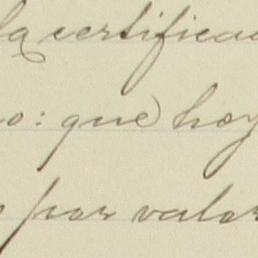 la certificac
o: que hoy
por valor